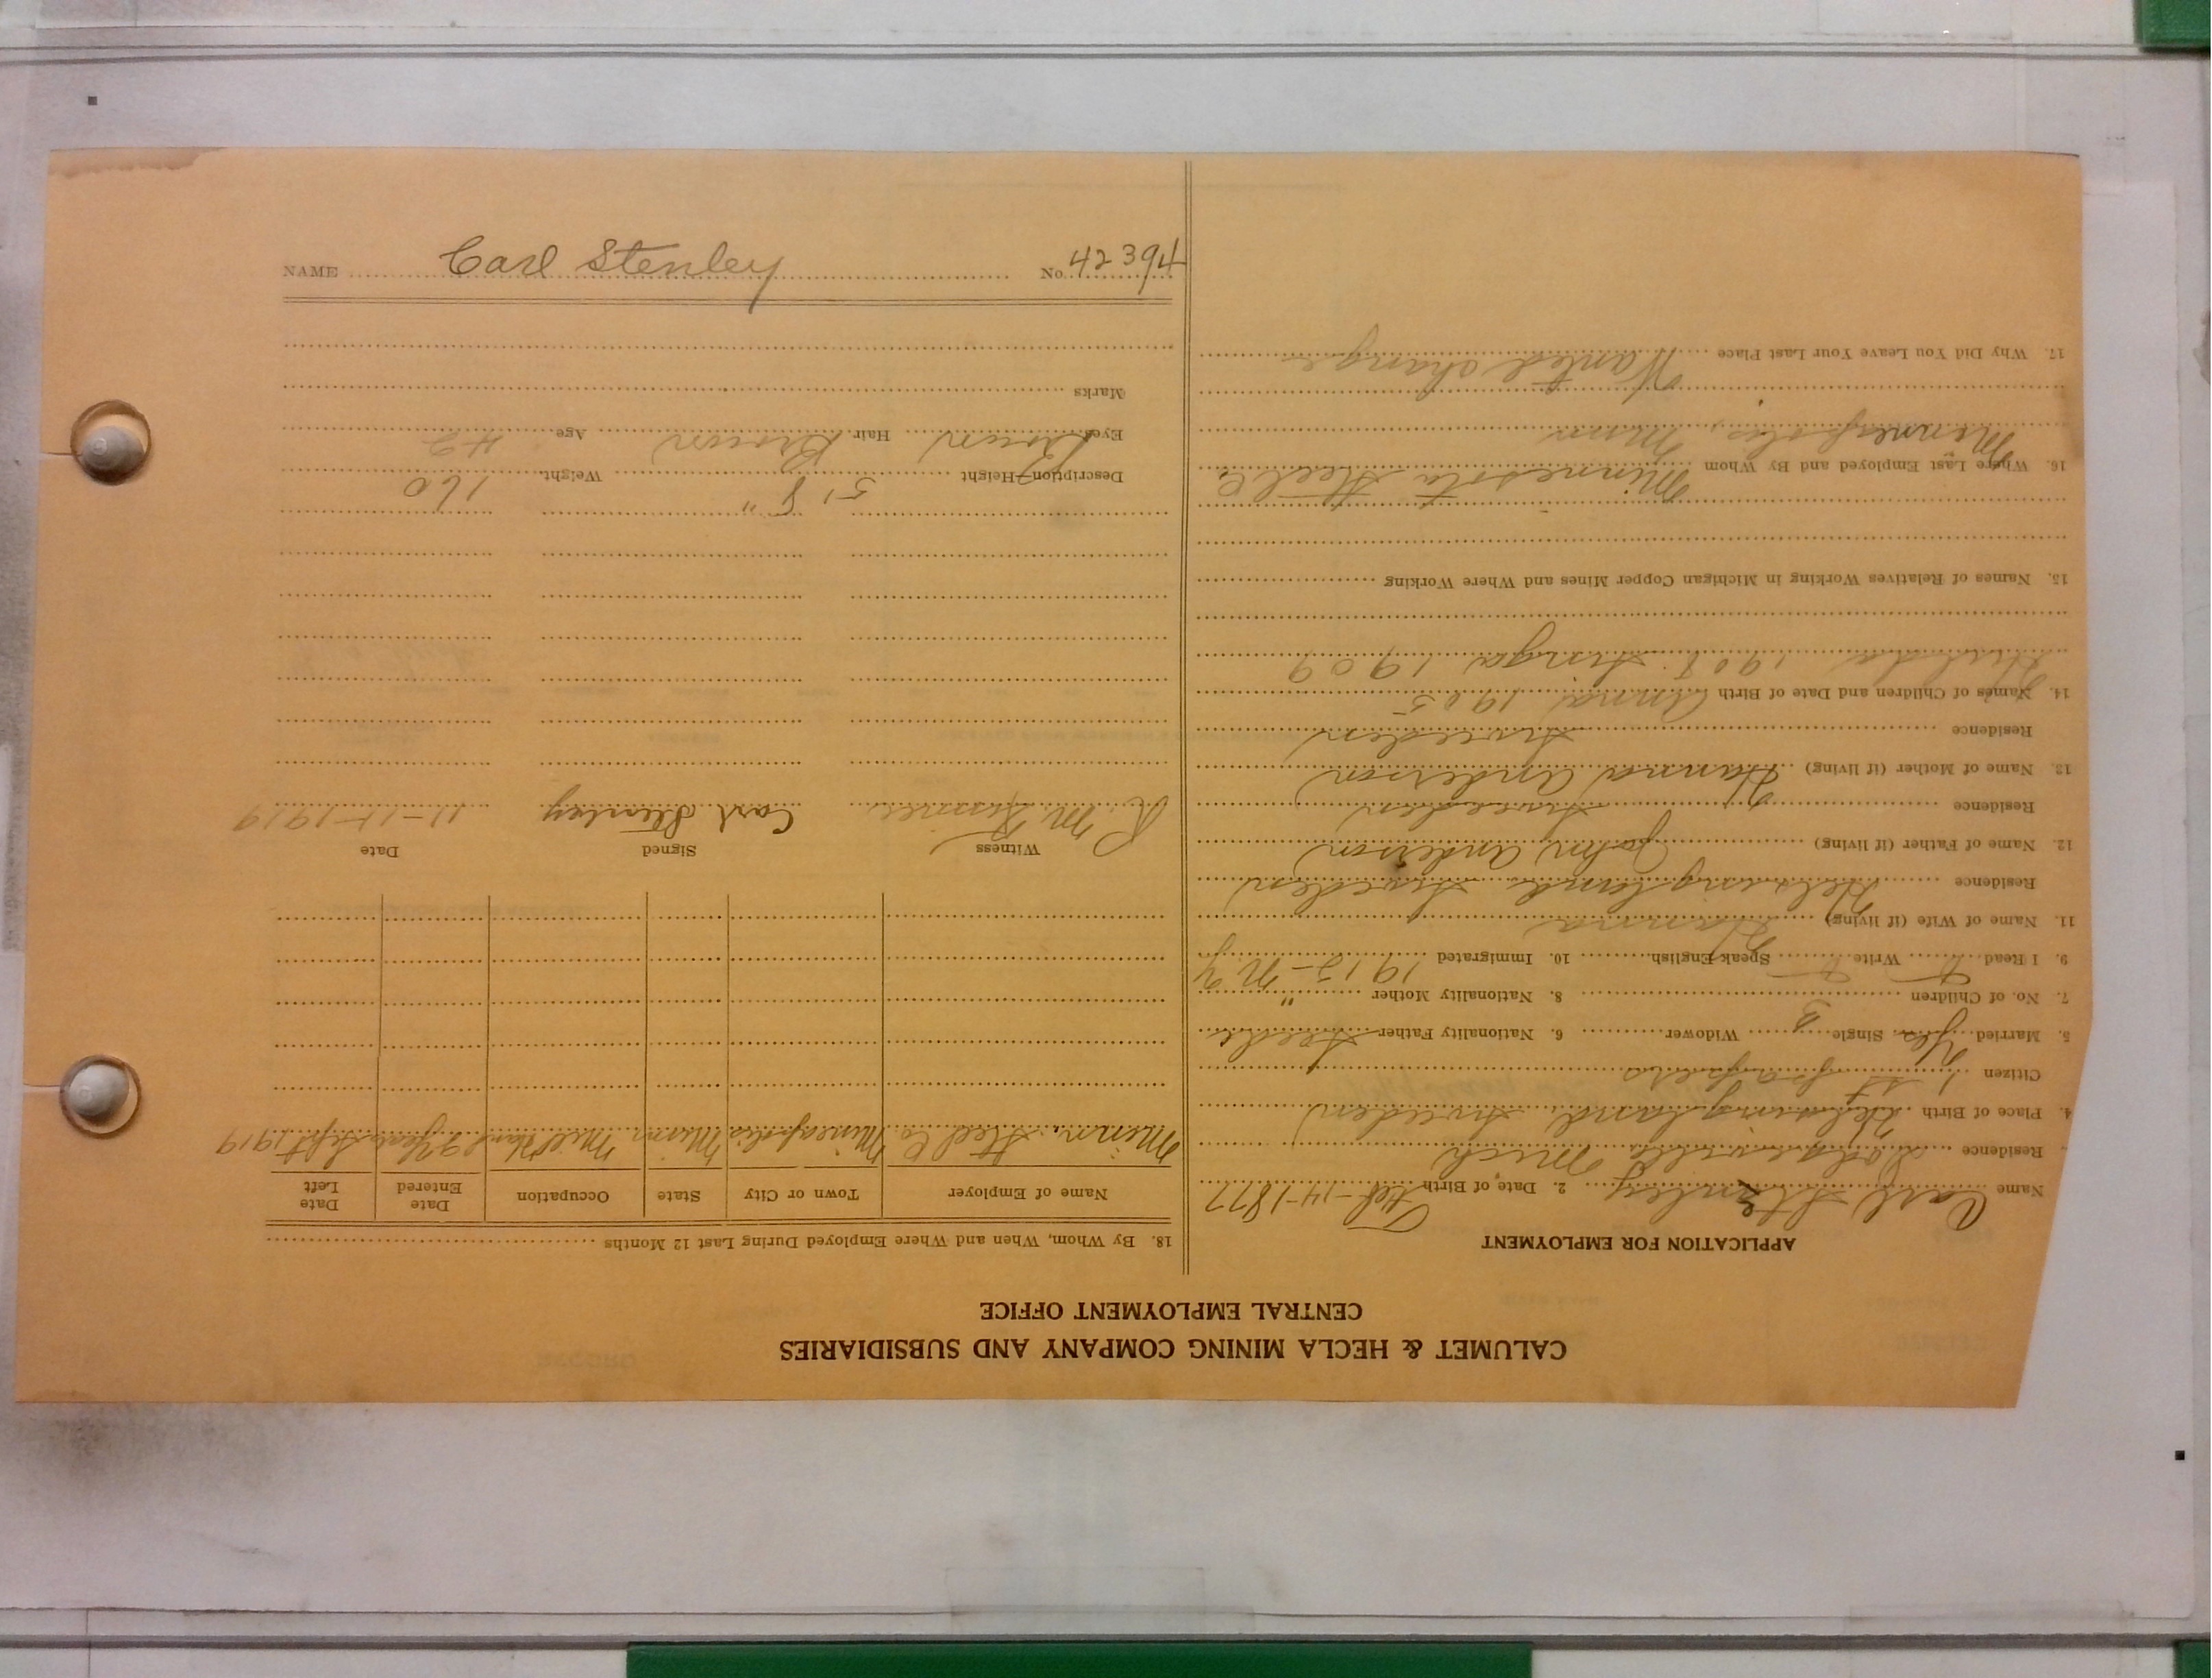 NAME Carl Stenley No. 42394
CALUMET & HECLA MINING COMPANY AND SUBSIDIARIES
CENTRAL EMPLOYMENT OFFICE
APPLICATION FOR EMPLOYMENT
Name Carl Stenley 2. Date of Birth Feb-14-1877
Residence Mich
4. Place of Birth Helsingland, Sweden
Citizen 1st papers
5. Married Yes Single Widower 6. Nationality Father Swede
7. No. of Children 3 8. Nationality Mother "
9. I Read Write Speak English 10. Immigrated 1913-N.Y
11. Name of Wife (if living) Hanna
Residence Helsingland, Sweden
12. Name of Father (if living) John Anderson
Residence Sweden
13. Name of Mother (if living) Hanna Anderson
Residence Sweden
14. Names of Children and Date of Birth Anna 1905
Hulda 1908 1909
15. Names of Relatives Working in Michigan Copper Mines and Where Working
16. Where Last Employed and By Whom Minnesota Steel Co
Minneapolis, Minn
17. Why Did You Leave Your Last Place Wanted change
18. By Whom, When and Where Employed During Last 12 Months
Name of Employer Town or City State Occupation Date Entered Date Left
Minn. Steel Co Mineapolis Minn Mill Hand 2 Years Sept 1919
Witness Signed Date
R. M. Carl Stenley 11-11-1919
Description—Height 5' 8" Weight 160
Eyes Brown Hair Brown Age 42
Marks